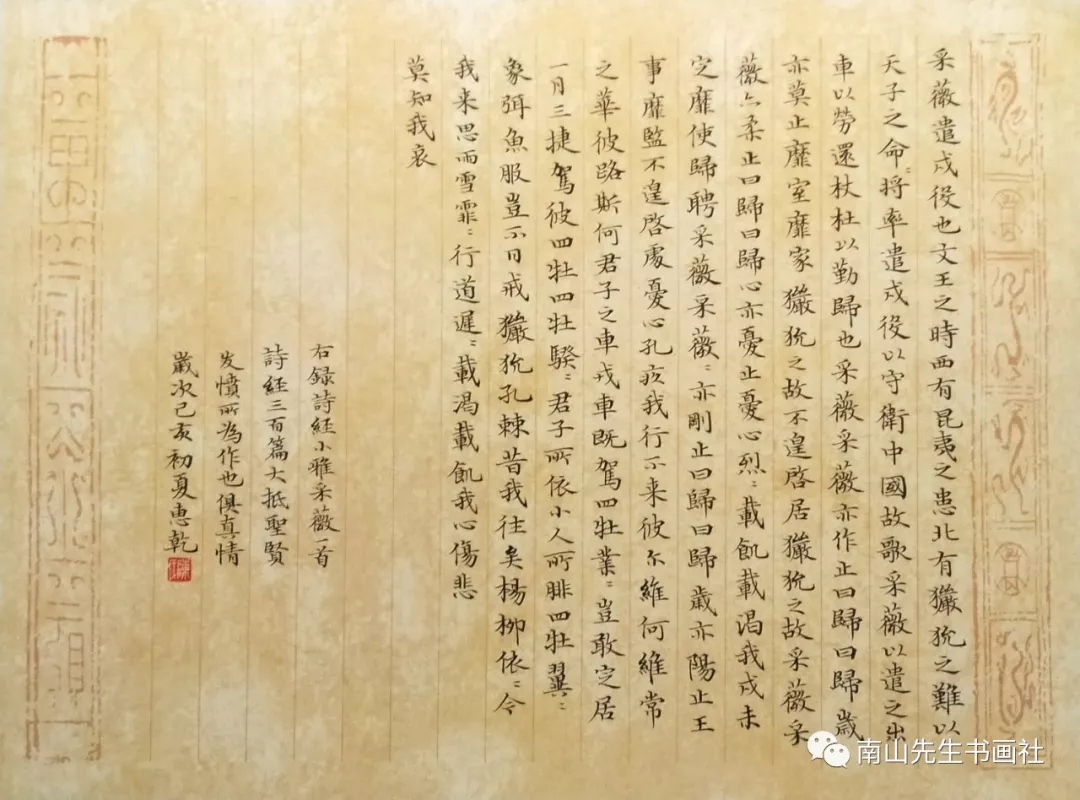 采薇遣戍役也文王之時西有昆夷之患北有玁狁之難以
天子之命將率遣戍役以守衛中國故歌采薇以遣之出
車以勞還杕杜以勤歸也采薇采薇亦作止曰歸曰歸歲
亦莫止靡室靡家玁狁之故不遑啓居玁狁之故采薇采
薇亦柔止曰歸曰歸心亦憂止憂心烈〻載飢載渴我戍未
定靡使歸聘采薇采薇〻亦剛止曰歸曰歸歲亦陽止王
事靡監不遑啓處憂心孔疚我行不来彼尔維何維常
之華彼路斯何君子之車戎車既駕四牡業〻豈敢定居
一月三捷駕彼四牡四牡騤〻君子所依小人所腓四牡翼〻
象弭魚服豈不日戒玁狁孔棘昔我往矣楊柳依〻今
我来思雨雪霏〻行道遲〻載渴載飢我心傷悲
莫知我哀
右録詩經小雅采薇一首
詩經三百篇大抵聖賢
发憤所為作也俱真情
歲次己亥初夏惠乾
南山先生书画社